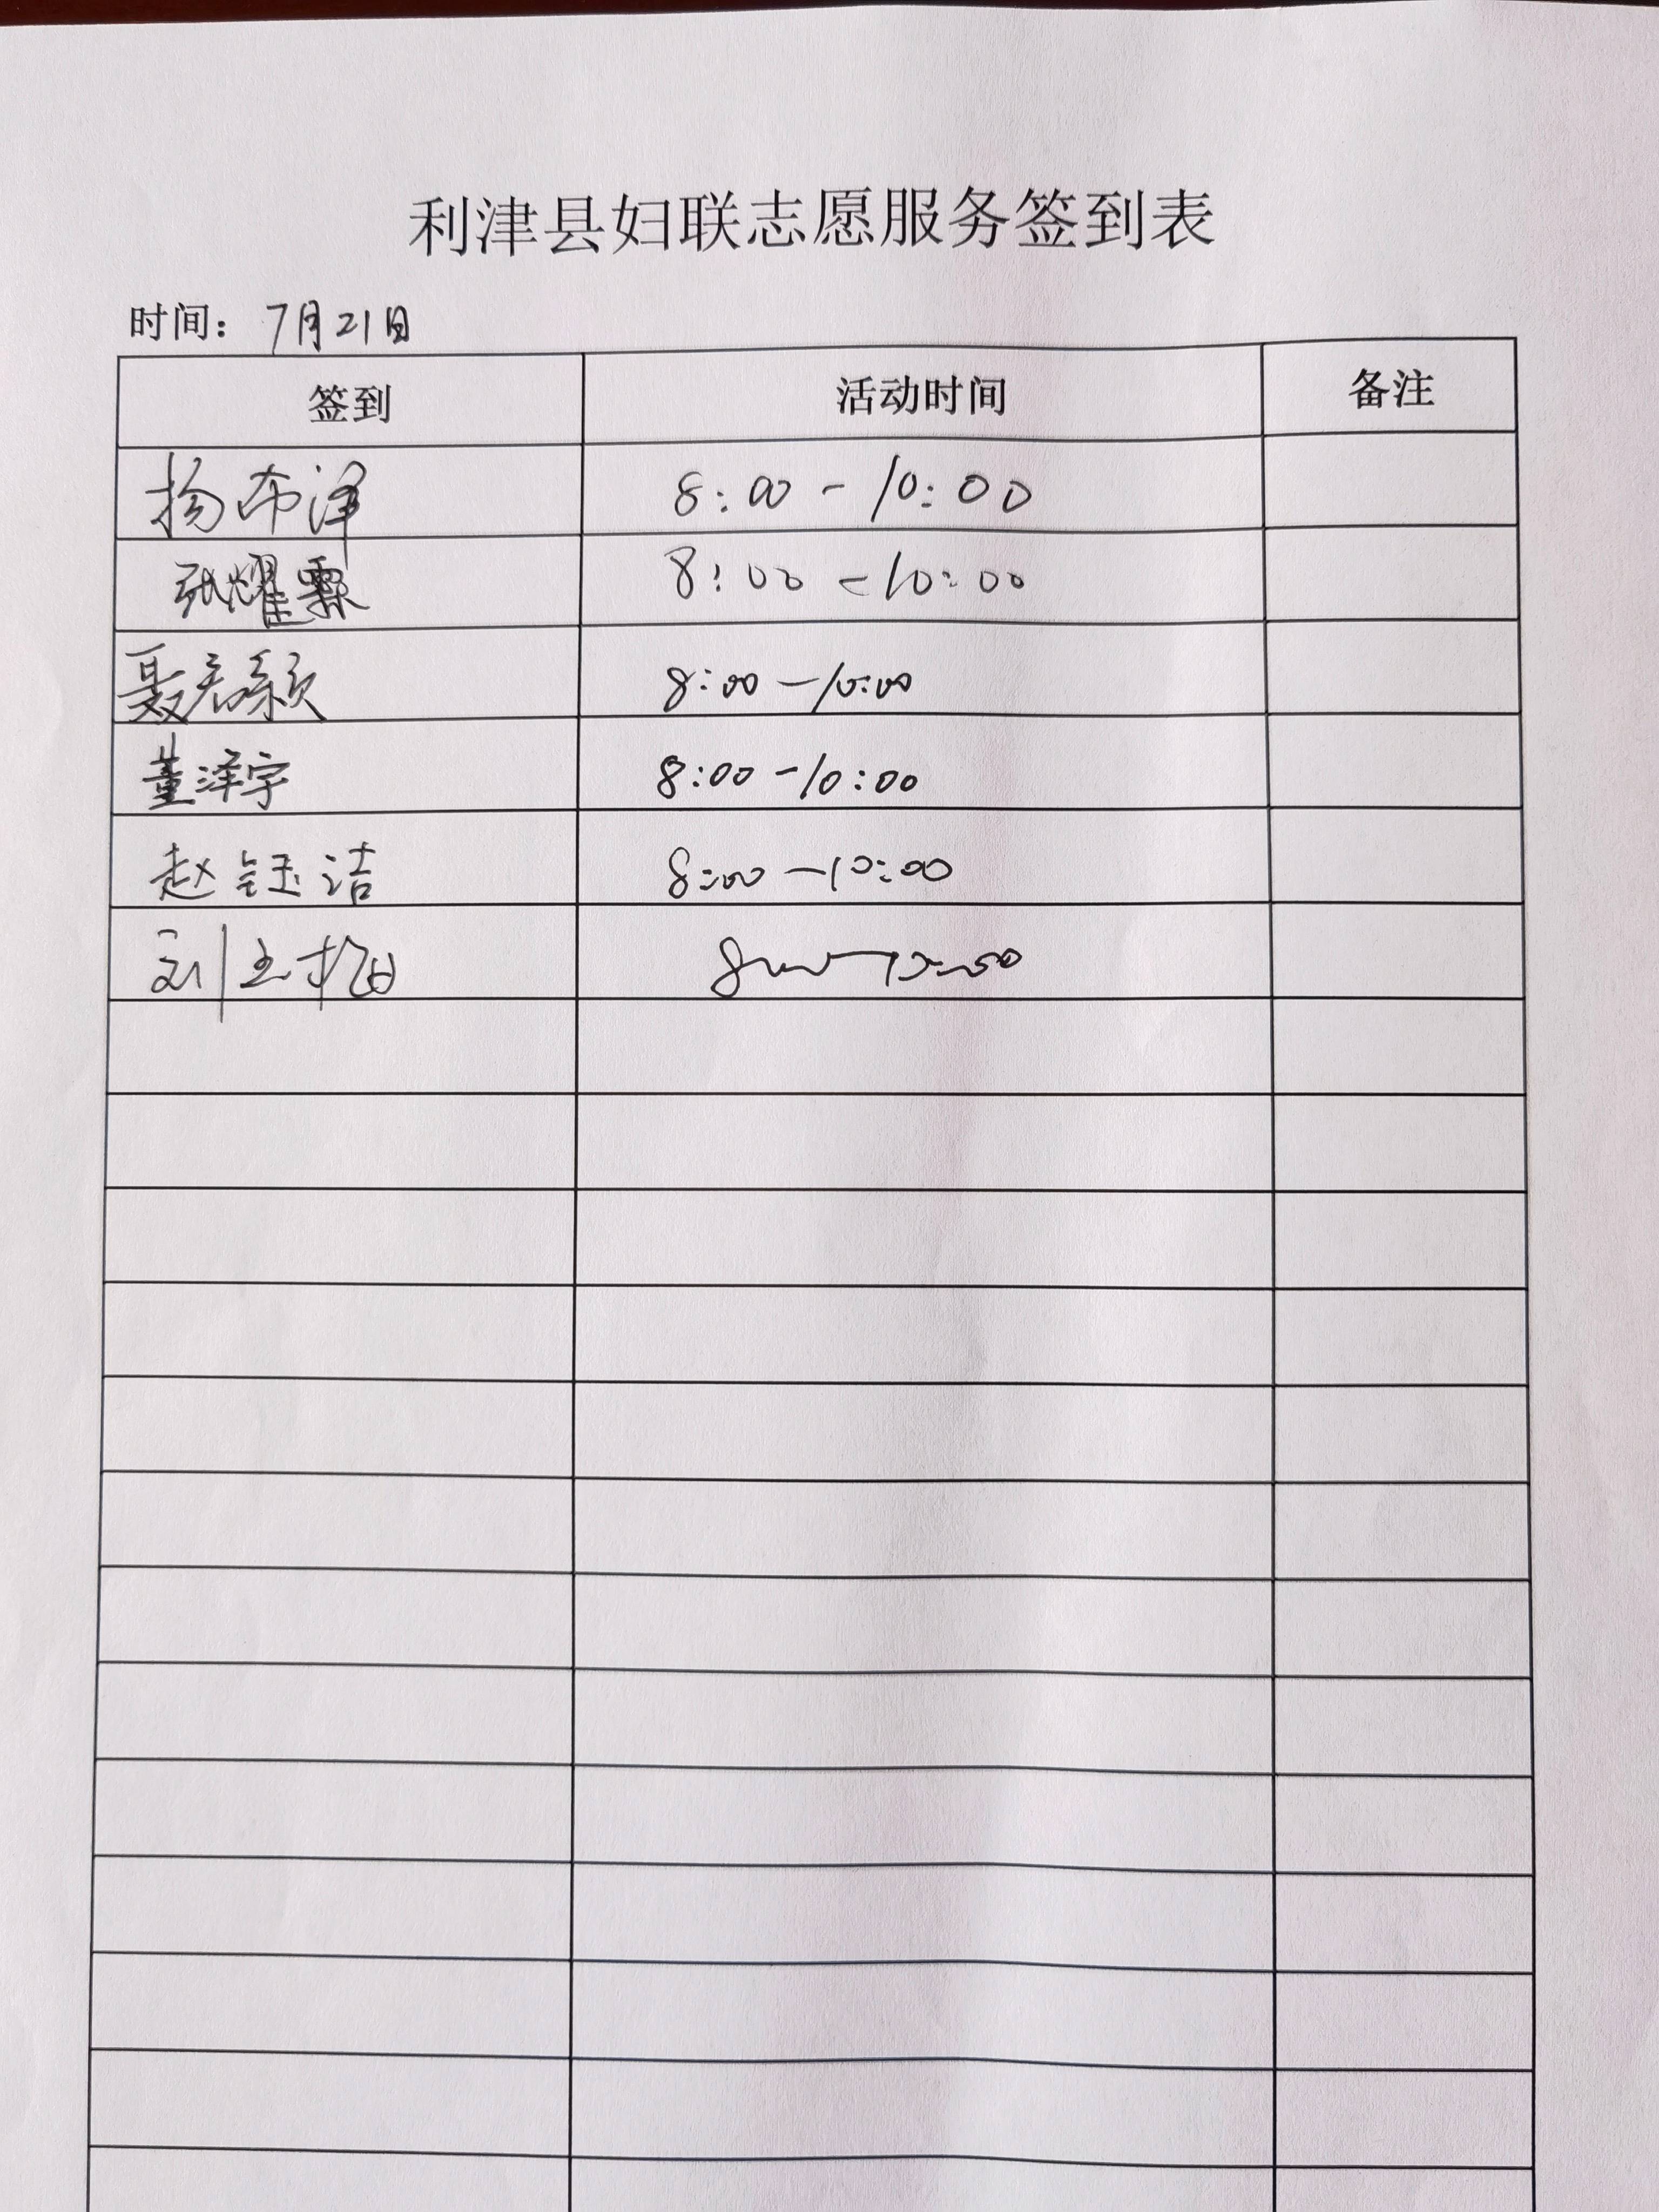 利津县妇联志愿服务签到表
时间：7月21日
签到 活动时间 备注
杨布泽 8:00-10:00
张耀霖 8:00-10:00
聂君颖 8:00-10:00
董泽宇 8:00-10:00
赵钰洁 8:00-10:00
刘玉 8:00-10:00